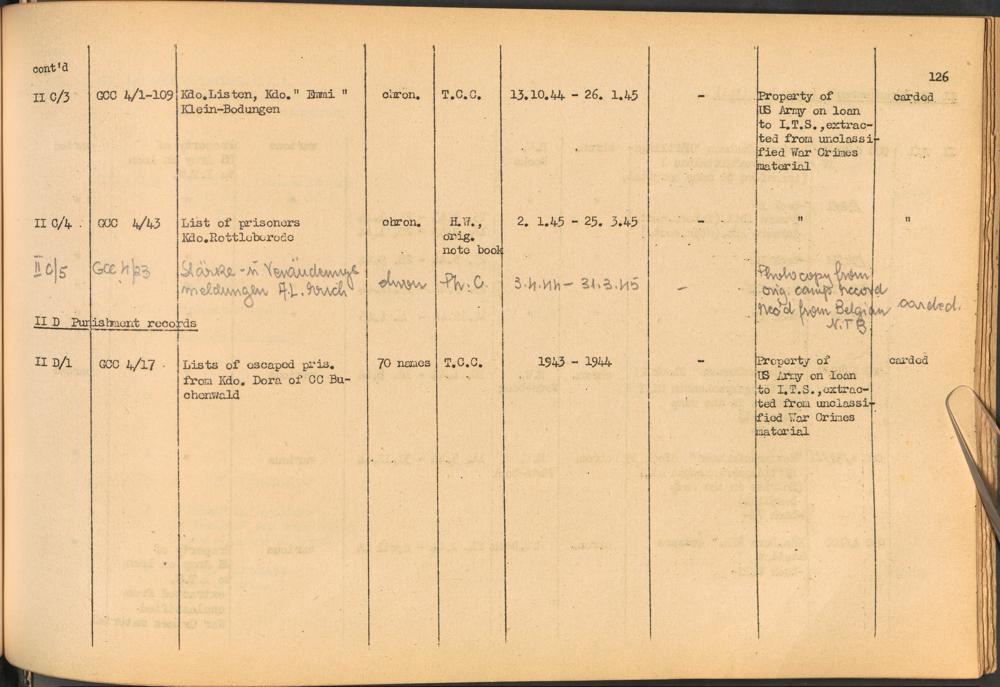 cont'd
126
II C/3 GCC 4/1-109 Kdo.Listen, Kdo." Emmi " chron. T.C.C. 13.10.44 - 26. 1.45 - Property of carded
Klein-Bodungen US Army on loan
to I.T.S.,extrac-
ted from unclassi-
fied War Crimes
material
II C/4 . GCC 4/43 List of prisoners chron. H.W., 2. 1.45 - 25. 3.45 - " "
Kdo.Rottleborode orig.
note book
II C/5 GCC 4/23 Stärke - u Veränderungs chron Ph.C. 3.4.44 - 31.3.45 - Photocopy from
meldungen A.L. orig. camp record carded.
Rec'd from Belgian
N.T B
II D Punishment records
II D/1 GCC 4/17 . Lists of escaped pris. 70 names T.C.C. 1943 - 1944 - Property of carded
from Kdo. Dora of CC Bu- US Army on loan
chenwald to I.T.S.,extrac-
ted from unclassi-
fied War Crimes
material